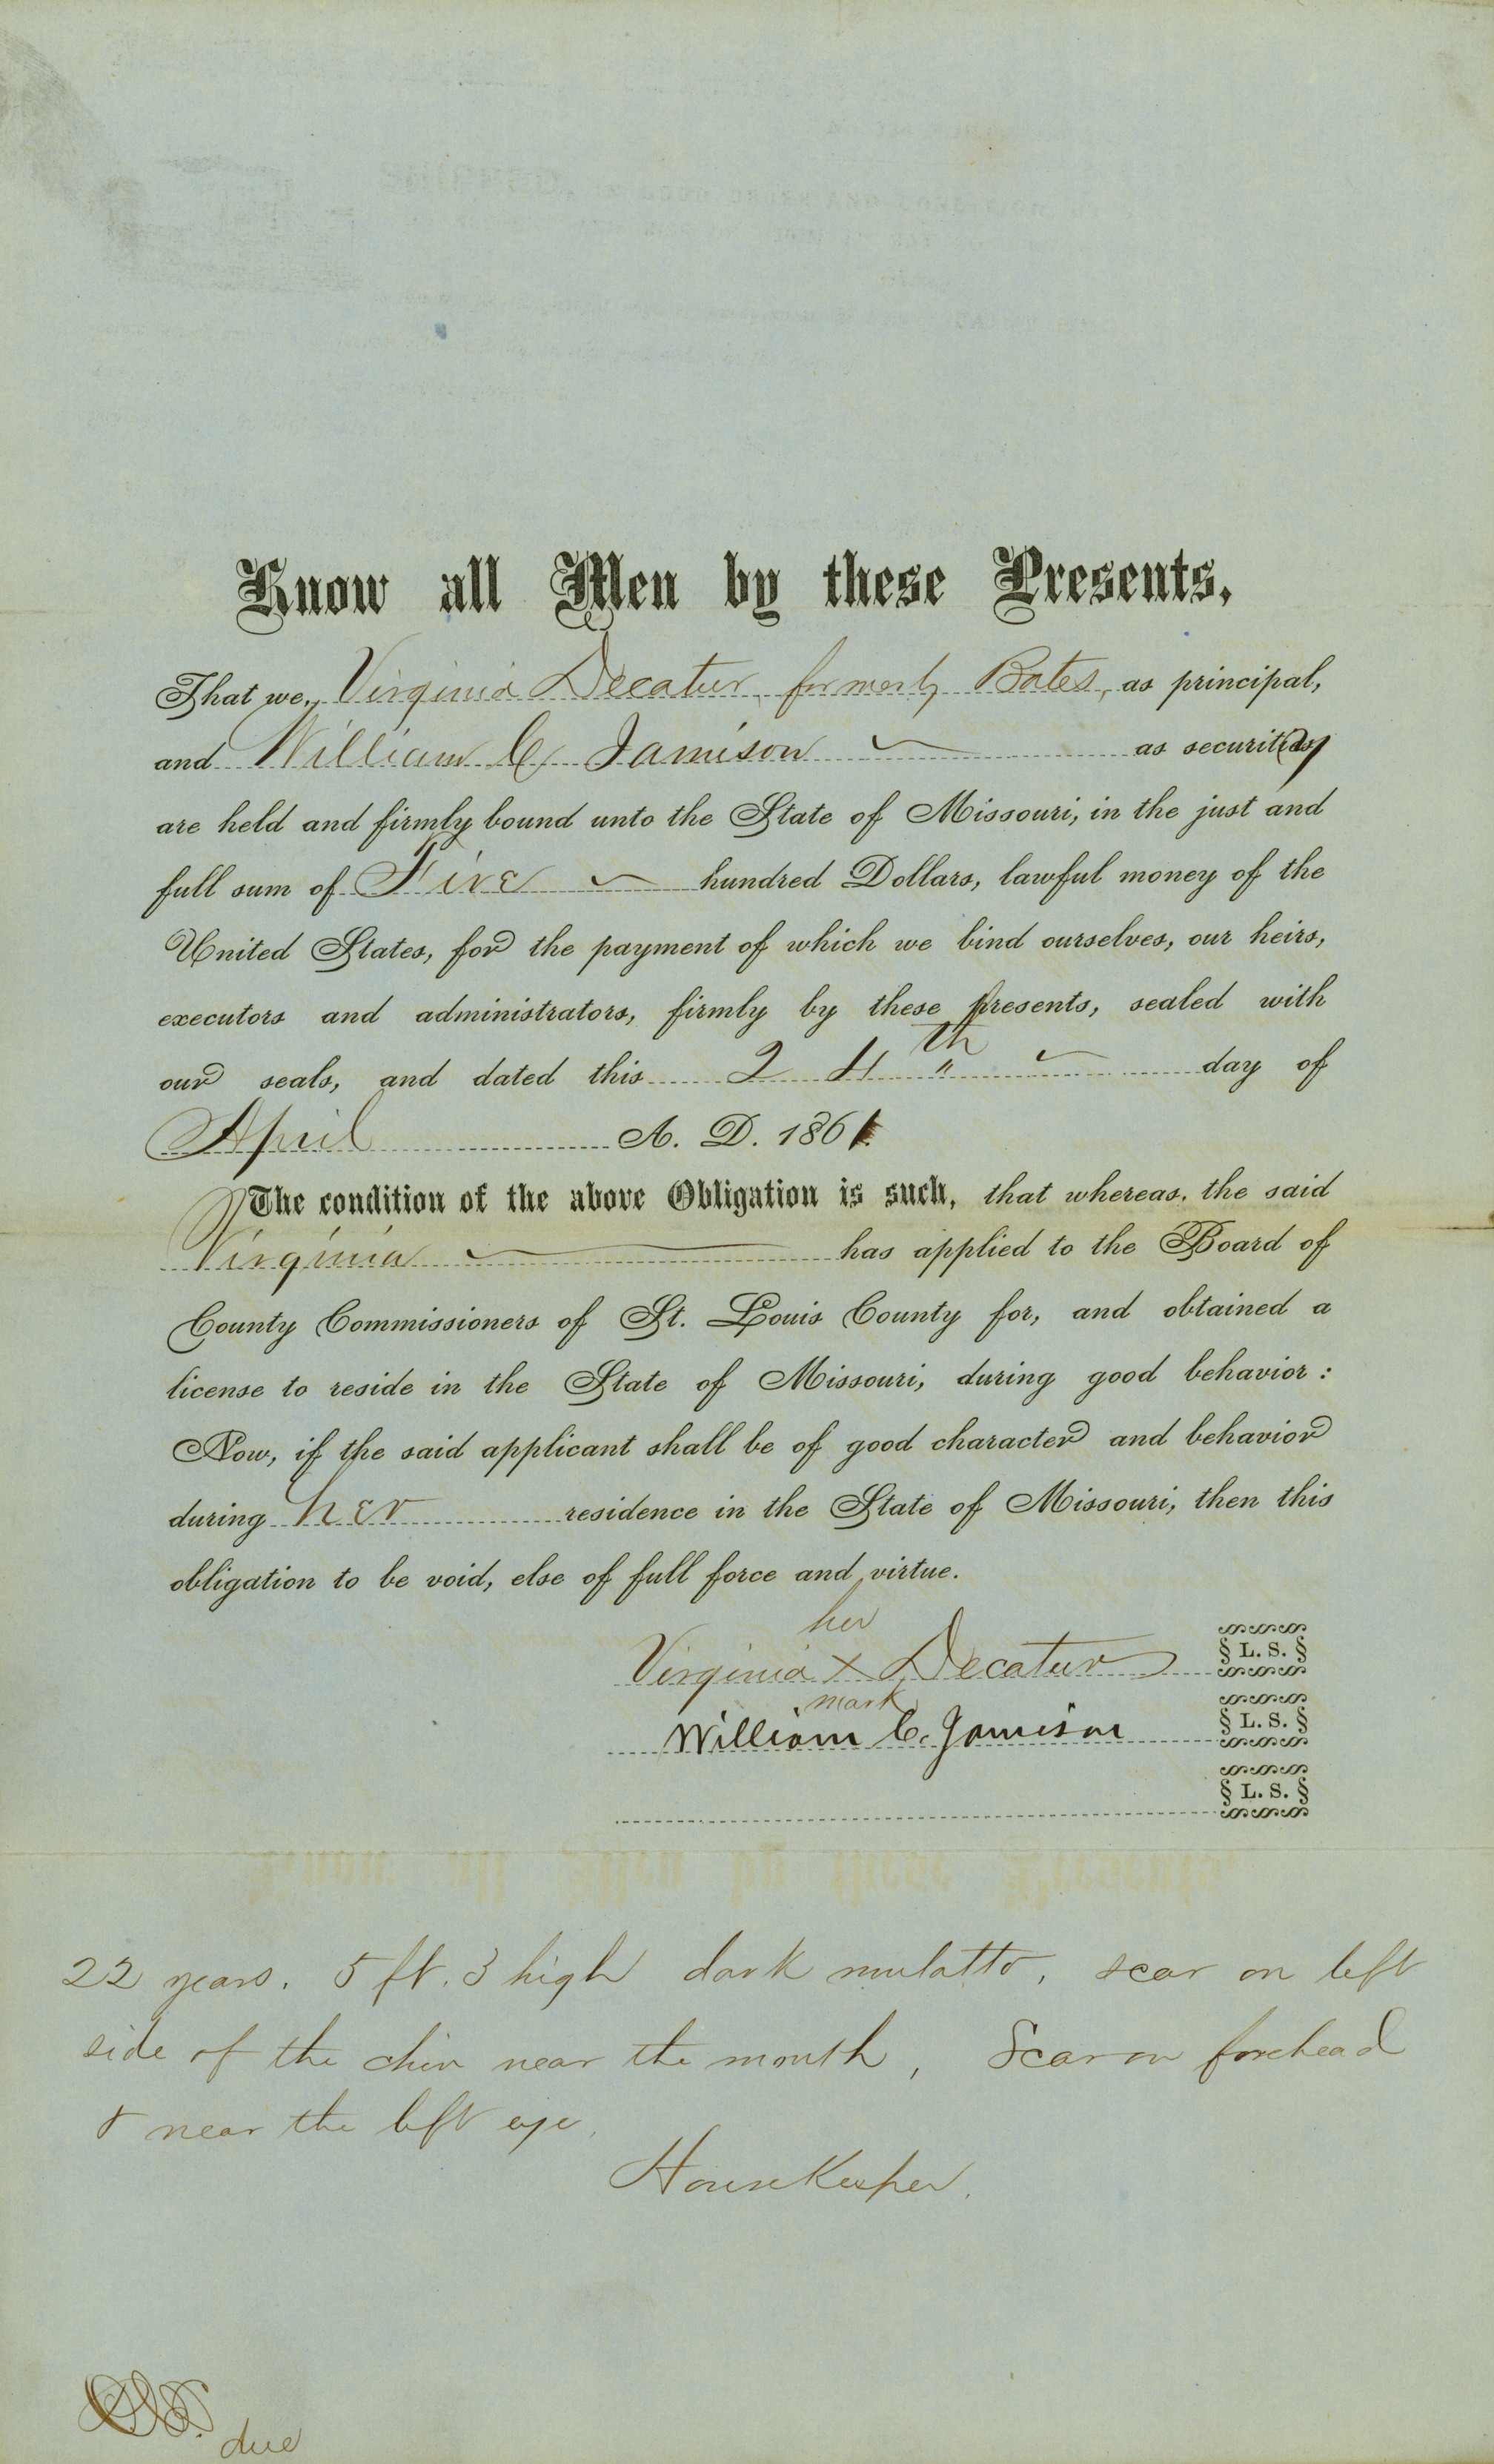 Know all Men by these Presents,
That we, Virginia Decatur formerly Bates, as principal,
and William C Jamison as security
are held and firmly bound unto the State of Missouri, in the just and
full sum of Five hundred Dollars, lawful money of the
United States, for the payment of which we bind ourselves, our heirs,
executors and administrators, firmly by these presents, sealed with
our seals, and dated this 24th day of
April A. D. 1861.
The condition of the above Obligation is such, that whereas, the said
Virginia has applied to the Board of
County Commissioners of St. Louis County for, and obtained a
license to reside in the State of Missouri, during good behavior:
Now, if the said applicant shall be of good character and behavior
during her residence in the State of Missouri, then this
obligation to be void, else of full force and virtue.
her
Virginia X Decatur § L. S. §
mark
William C. Jamison § L. S. §
§ L. S. §
22 years. 5 ft. 3 high dark mulatto, scar on left
side of the chin near the mouth, Scar on forehead
& near the left eye.
HouseKeeper.
due